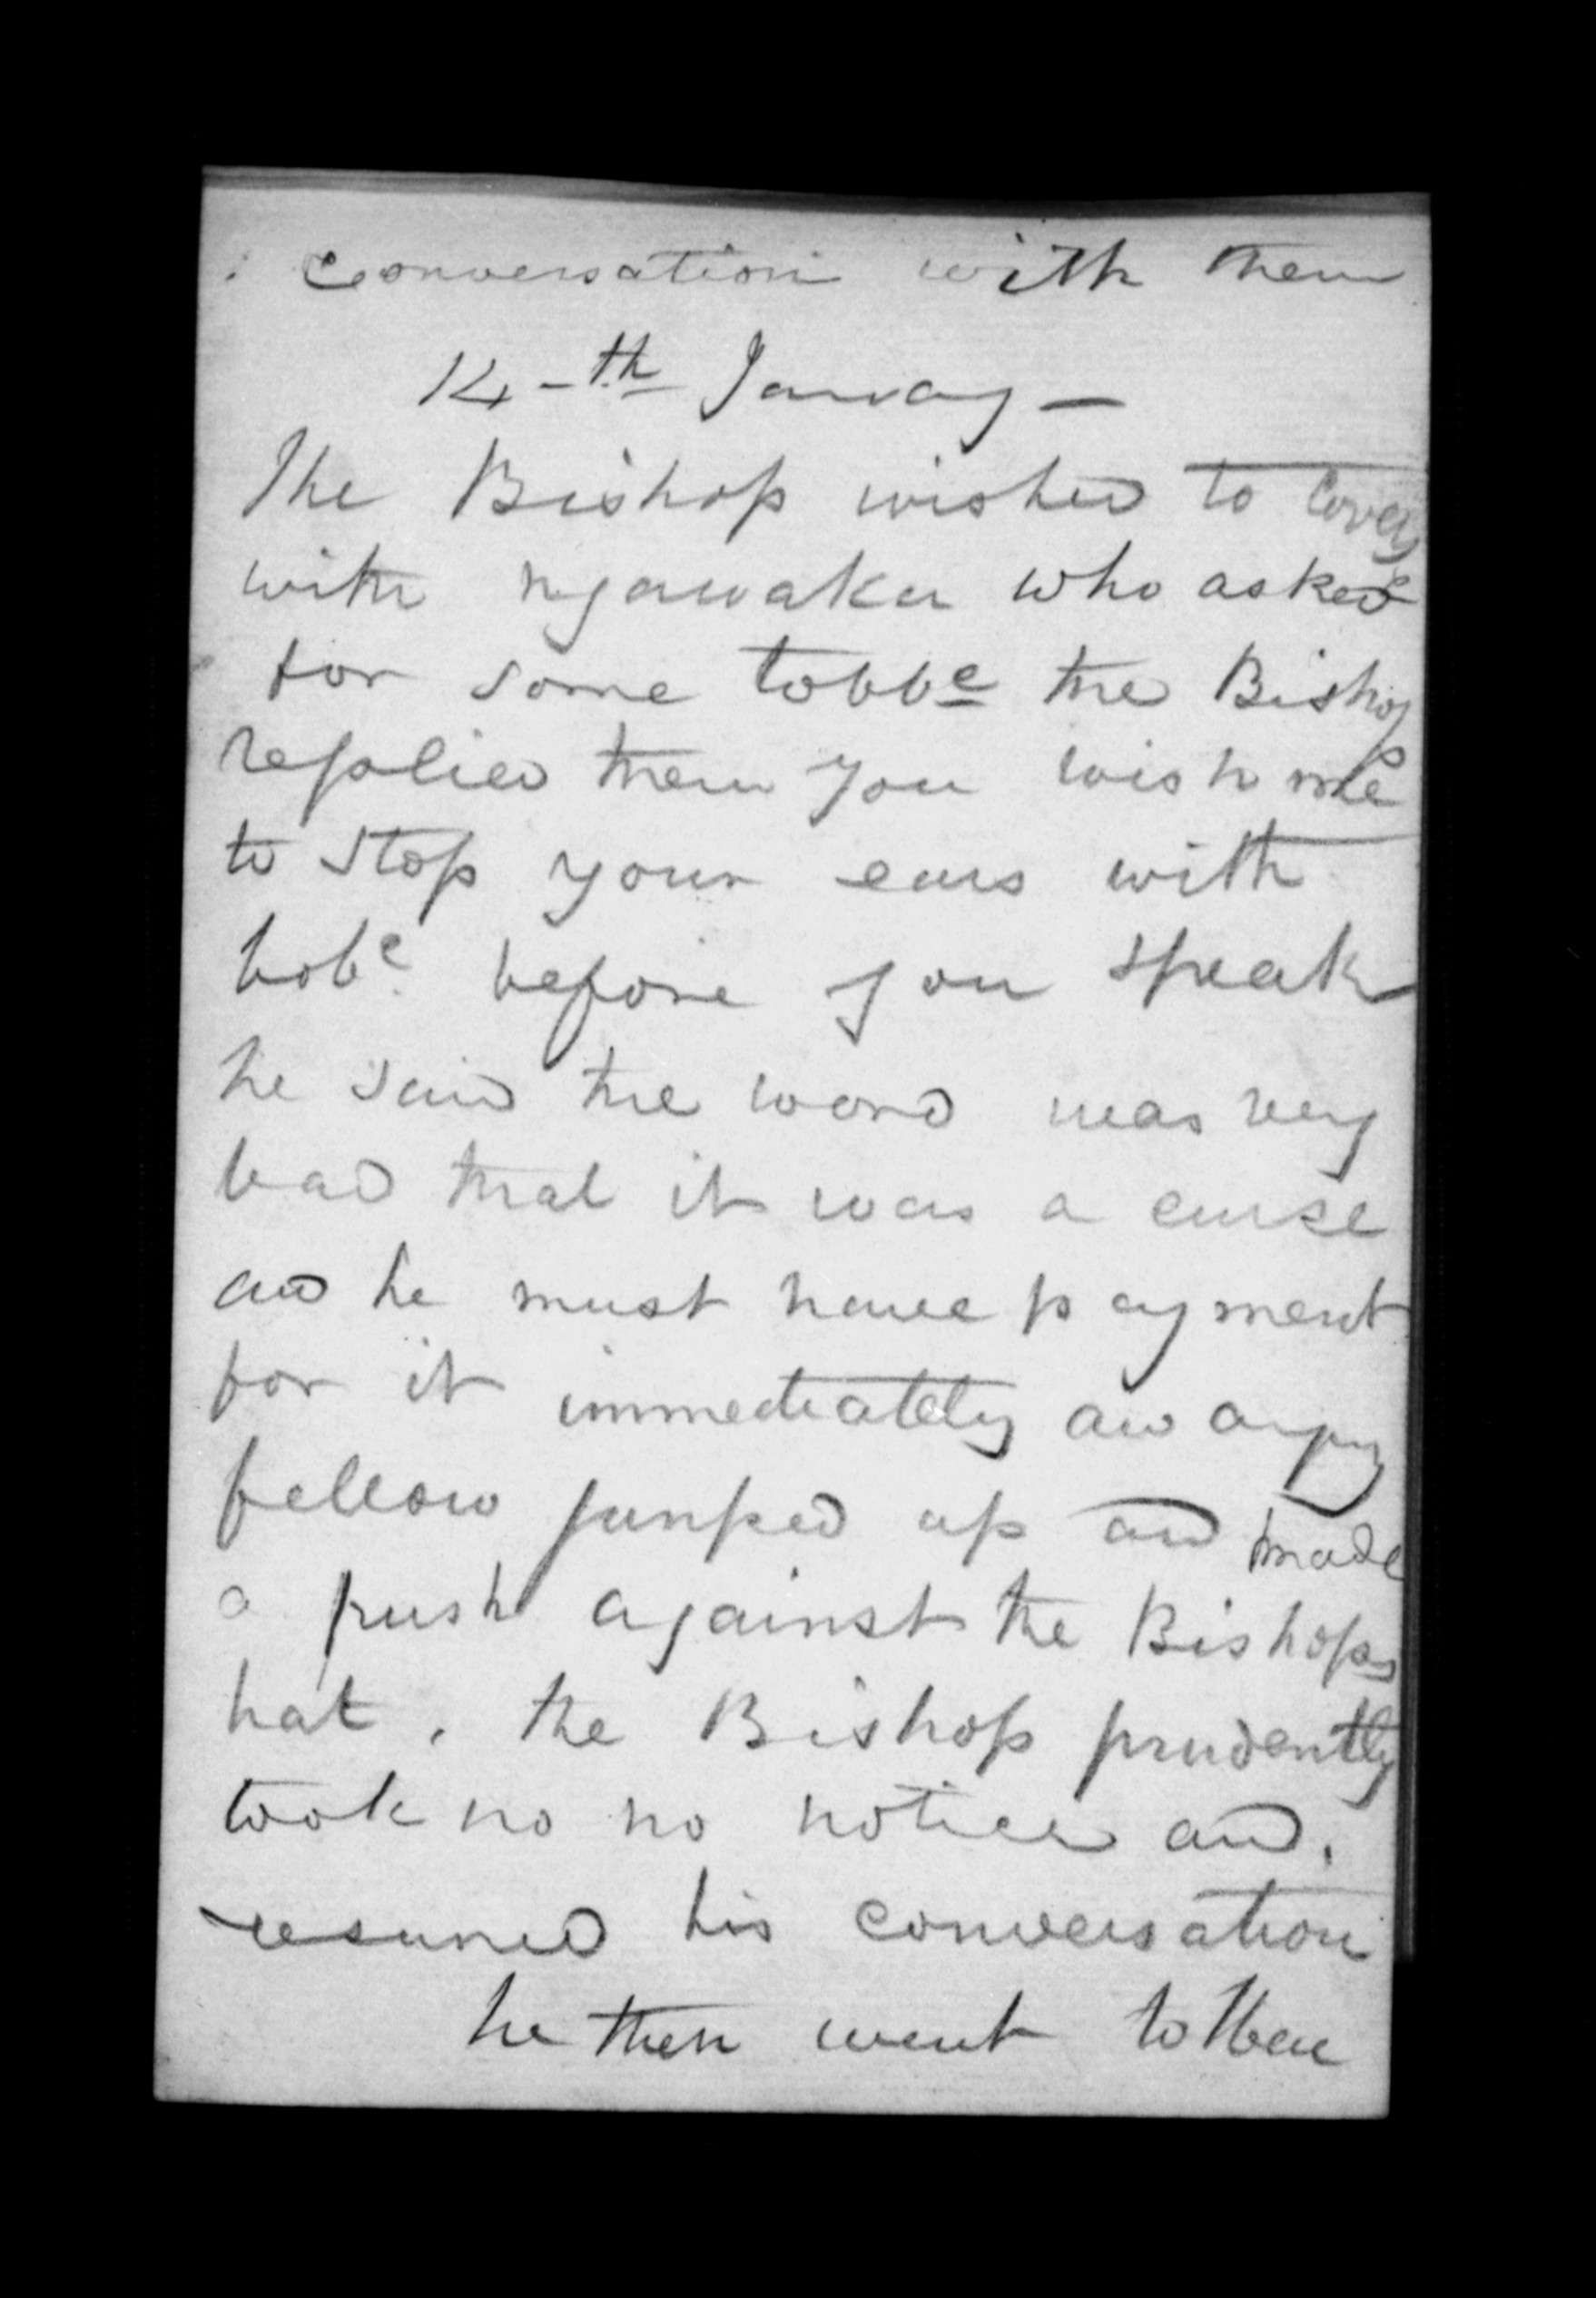 conversation with them
14-th January —
The Bishop wished to
with ngawaka who asked
for some tobbc the Bishop
replied then you wish me
to stop your ears with
bobc before you speak
he said the word was very
bad that it was a curse
and he must have payment
for it immediately an angry
fellow jumped up and made
a push against the Bishops
hat, the Bishop prudently
took no no notice and.
resumed his conversation
he then went to